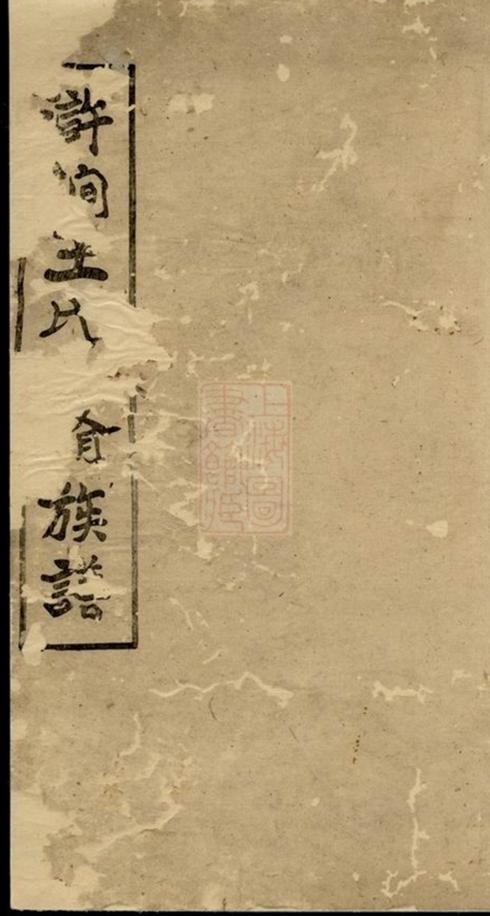 滸洵王氏族譜
上海圖書館藏